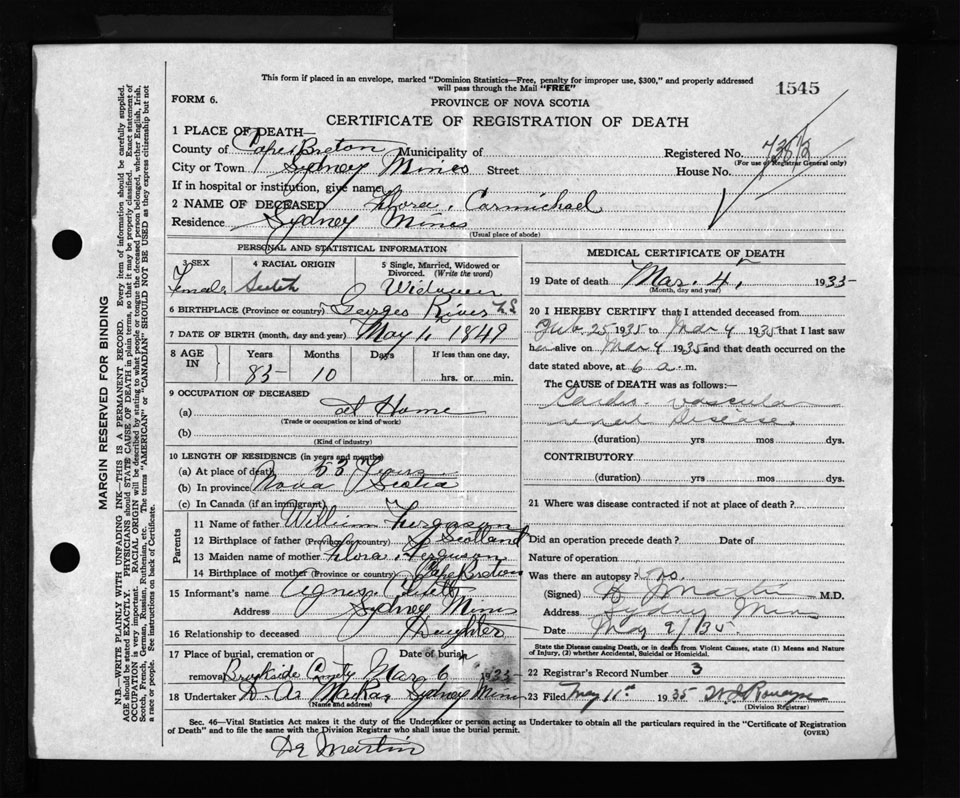 This form if placed in an envelope, marked "Dominion Statistics—Free, penalty for improper use, $300," and properly addressed
will pass through the Mail "FREE"
1545
FORM 6.
PROVINCE OF NOVA SCOTIA
CERTIFICATE OF REGISTRATION OF DEATH
1 PLACE OF DEATH—
County of Cape Breton Municipality of Registered No.
(For use of Registrar General only)
City or Town Sydney Mines Street House No.
If in hospital or institution, give name
2 NAME OF DECEASED Flora Carmichael
Residence Sydney Mines
(Usual place of abode)
PERSONAL AND STATISTICAL INFORMATION
3 SEX 4 RACIAL ORIGIN 5 Single, Married, Widowed or Divorced. (Write the word)
Female Scotch
6 BIRTHPLACE (Province or country) Georges River N.S
7 DATE OF BIRTH (month, day and year) May 1, 1849
8 AGE IN Years Months Days If less than one day,
83 10 hrs. or min.
9 OCCUPATION OF DECEASED
(a) at Home
(Trade or occupation or kind of work)
(b)
(Kind of industry)
10 LENGTH OF RESIDENCE (in years and months)
(a) At place of death 53 Years
(b) In province Nova Scotia
(c) In Canada (if an immigrant)
Parents
11 Name of father William Ferguson
12 Birthplace of father (Province or country) Scotland
13 Maiden name of mother Flora Ferguson
14 Birthplace of mother (Province or country) Cape Breton
15 Informant's name Agnes
Address Sydney Mines
16 Relationship to deceased Daughter
17 Place of burial, cremation or removal Date of burial
Brookside Mar 6
18 Undertaker D. A. MacKay Sydney Mines
(Name and address)
MEDICAL CERTIFICATE OF DEATH
19 Date of death Mar. 4, 1933
(Month, day and year)
20 I HEREBY CERTIFY that I attended deceased from
25 1935 to Mar 4 1935 that I last saw
her alive on Mar 4 1935 and that death occurred on the
date stated above, at 6 a. m.
The CAUSE of DEATH was as follows:—
Cardio-vascular
renal Disease.
(duration) yrs mos dys.
CONTRIBUTORY
(duration) yrs mos dys.
21 Where was disease contracted if not at place of death?
Did an operation precede death? Date of
Nature of operation
Was there an autopsy? no.
(Signed) Martin M.D.
Address Sydney Mines
Date May 9/35.
State the Disease causing Death, or in death from Violent Causes, state (1) Means and Nature of Injury, (2) whether Accidental, Suicidal or Homicidal.
22 Registrar's Record Number 3
23 Filed May 11th 1935
(Division Registrar)
Sec. 46—Vital Statistics Act makes it the duty of the Undertaker or person acting as Undertaker to obtain all the particulars required in the "Certificate of Registration
of Death" and to file the same with the Division Registrar who shall issue the burial permit.
(OVER)
Dr Martin
MARGIN RESERVED FOR BINDING
N.B.—WRITE PLAINLY WITH UNFADING INK—THIS IS A PERMANENT RECORD. Every item of information should be carefully supplied.
AGE should be stated EXACTLY. PHYSICIANS should STATE CAUSE OF DEATH in plain terms, so that it may be properly classified. Exact statement of
OCCUPATION is very important. RACIAL ORIGIN will be described by stating to what people or tongue the deceased person belonged, whether English, Irish,
Scotch, French, German, Russian, Ruthenian, etc. The terms "AMERICAN" or "CANADIAN" SHOULD NOT BE USED as they express citizenship but not
a race or people. See instructions on back of Certificate.